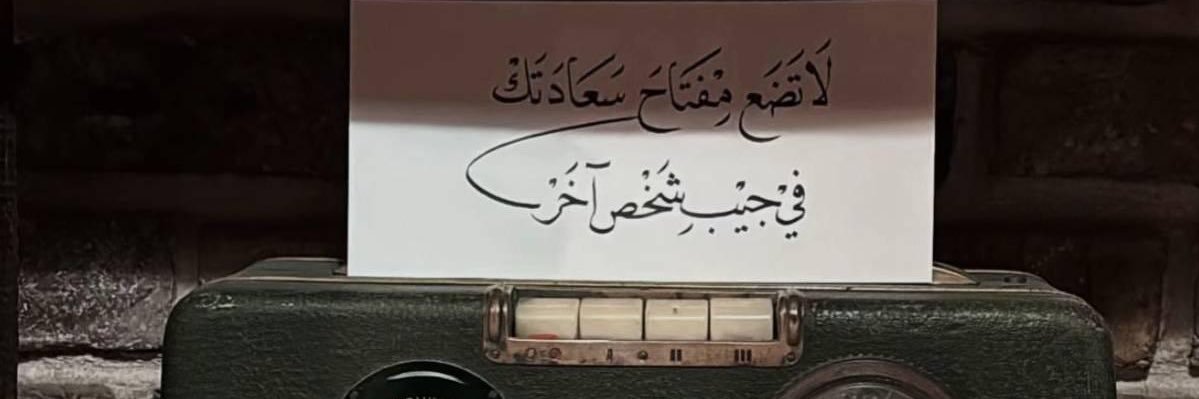 لَا تَضَع مِفْتَاحَ سَعَادَتَكْ
فِيْ جَيْبِ شَخْص آخَرْ